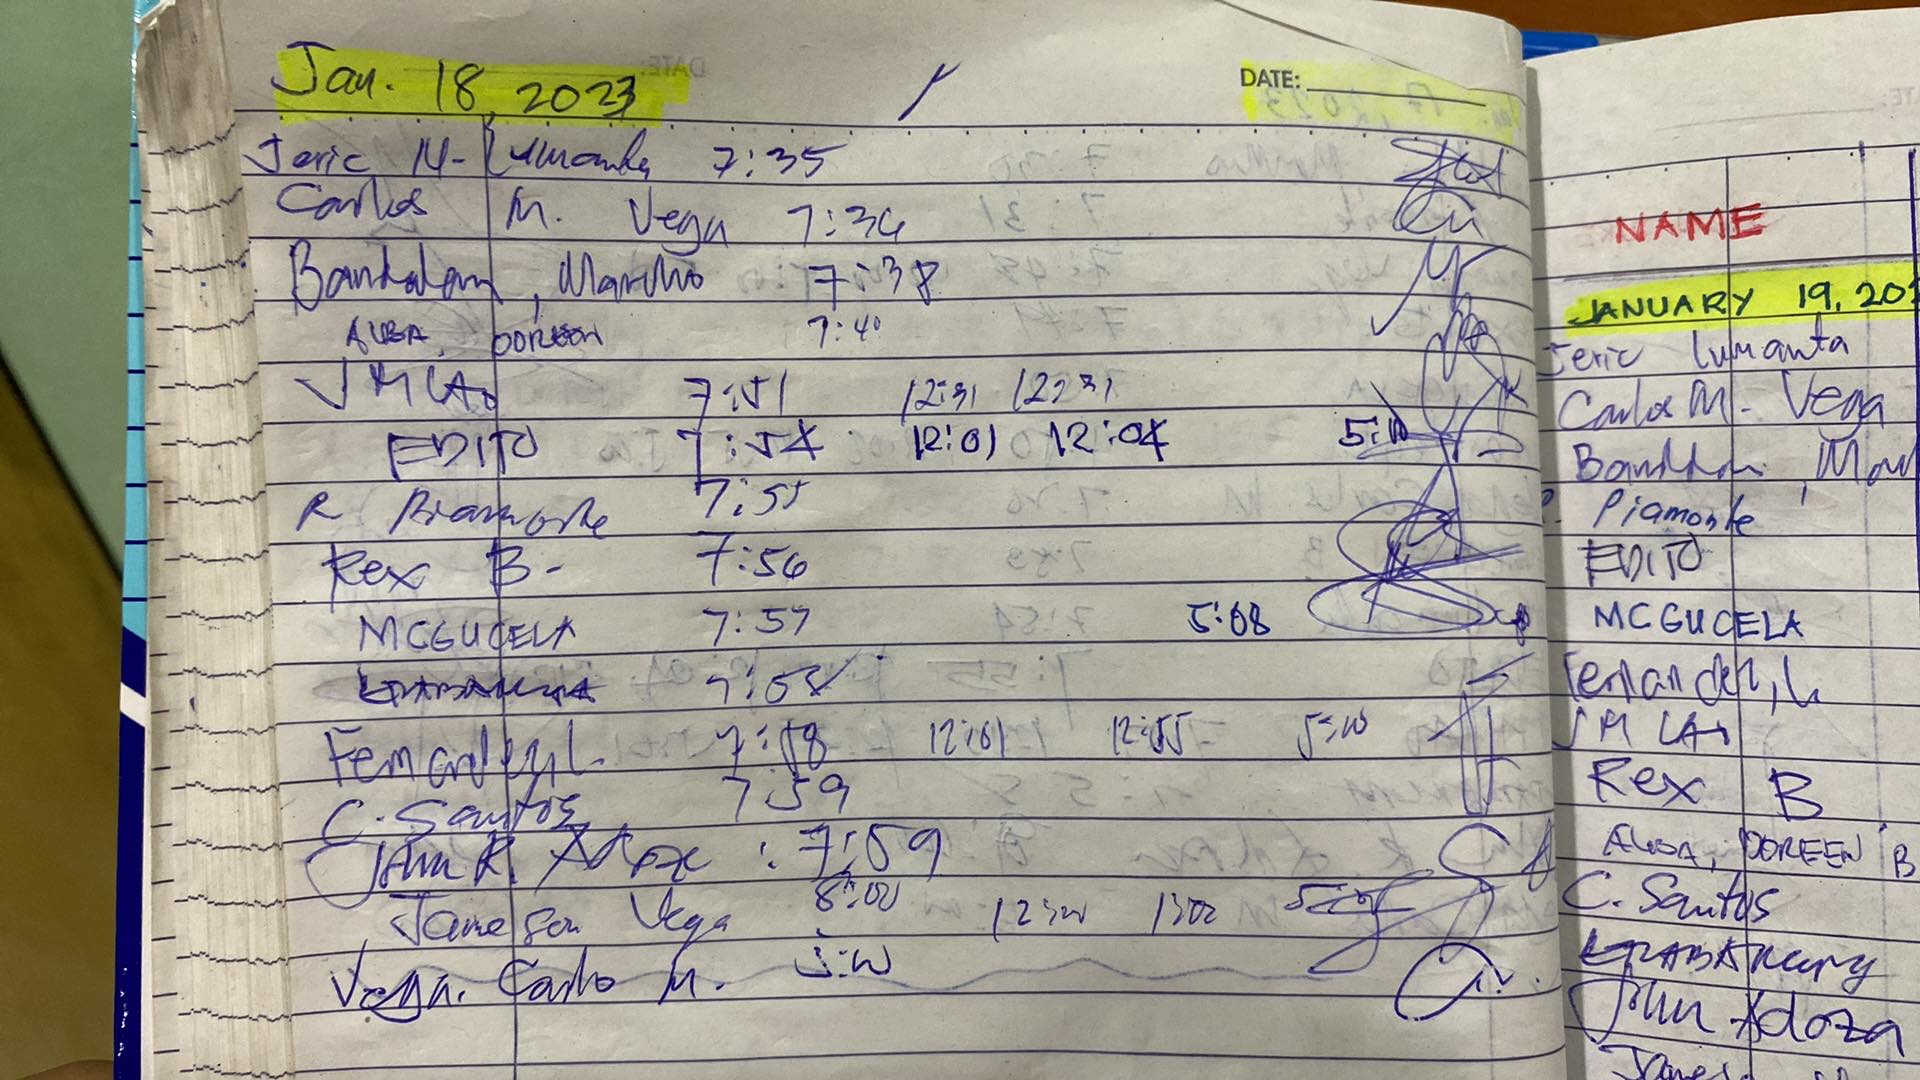 Jan. 18, 2023
DATE:
Jeric M. Lumanta 7:35
Carlos M. Vega 7:36
Bandalan, 7:38
ALBA, DOREEN 7:40
JM 7:51 12:31 12:31
EDITO 7:54 12:01 12:04 5:10
R Piamonte 7:55
Rex B- 7:56
MCGUCELA 7:57 5:08
7:58
Fernandez, L. 7:58 12:01 12:55 5:10
C. Santos 7:59
John R. : 7:59
Jameson Vega 8:00 12:00 1:02
Vega. Carlo M. 5:10
NAME
JANUARY 19, 20
Jeric Lumanta
Carlos M. Vega
R. Piamonte
EDITO
MCGUCELA
Fernandez, L
JM
Rex B
ALBA, DOREEN B
C. Santos
John Adoza